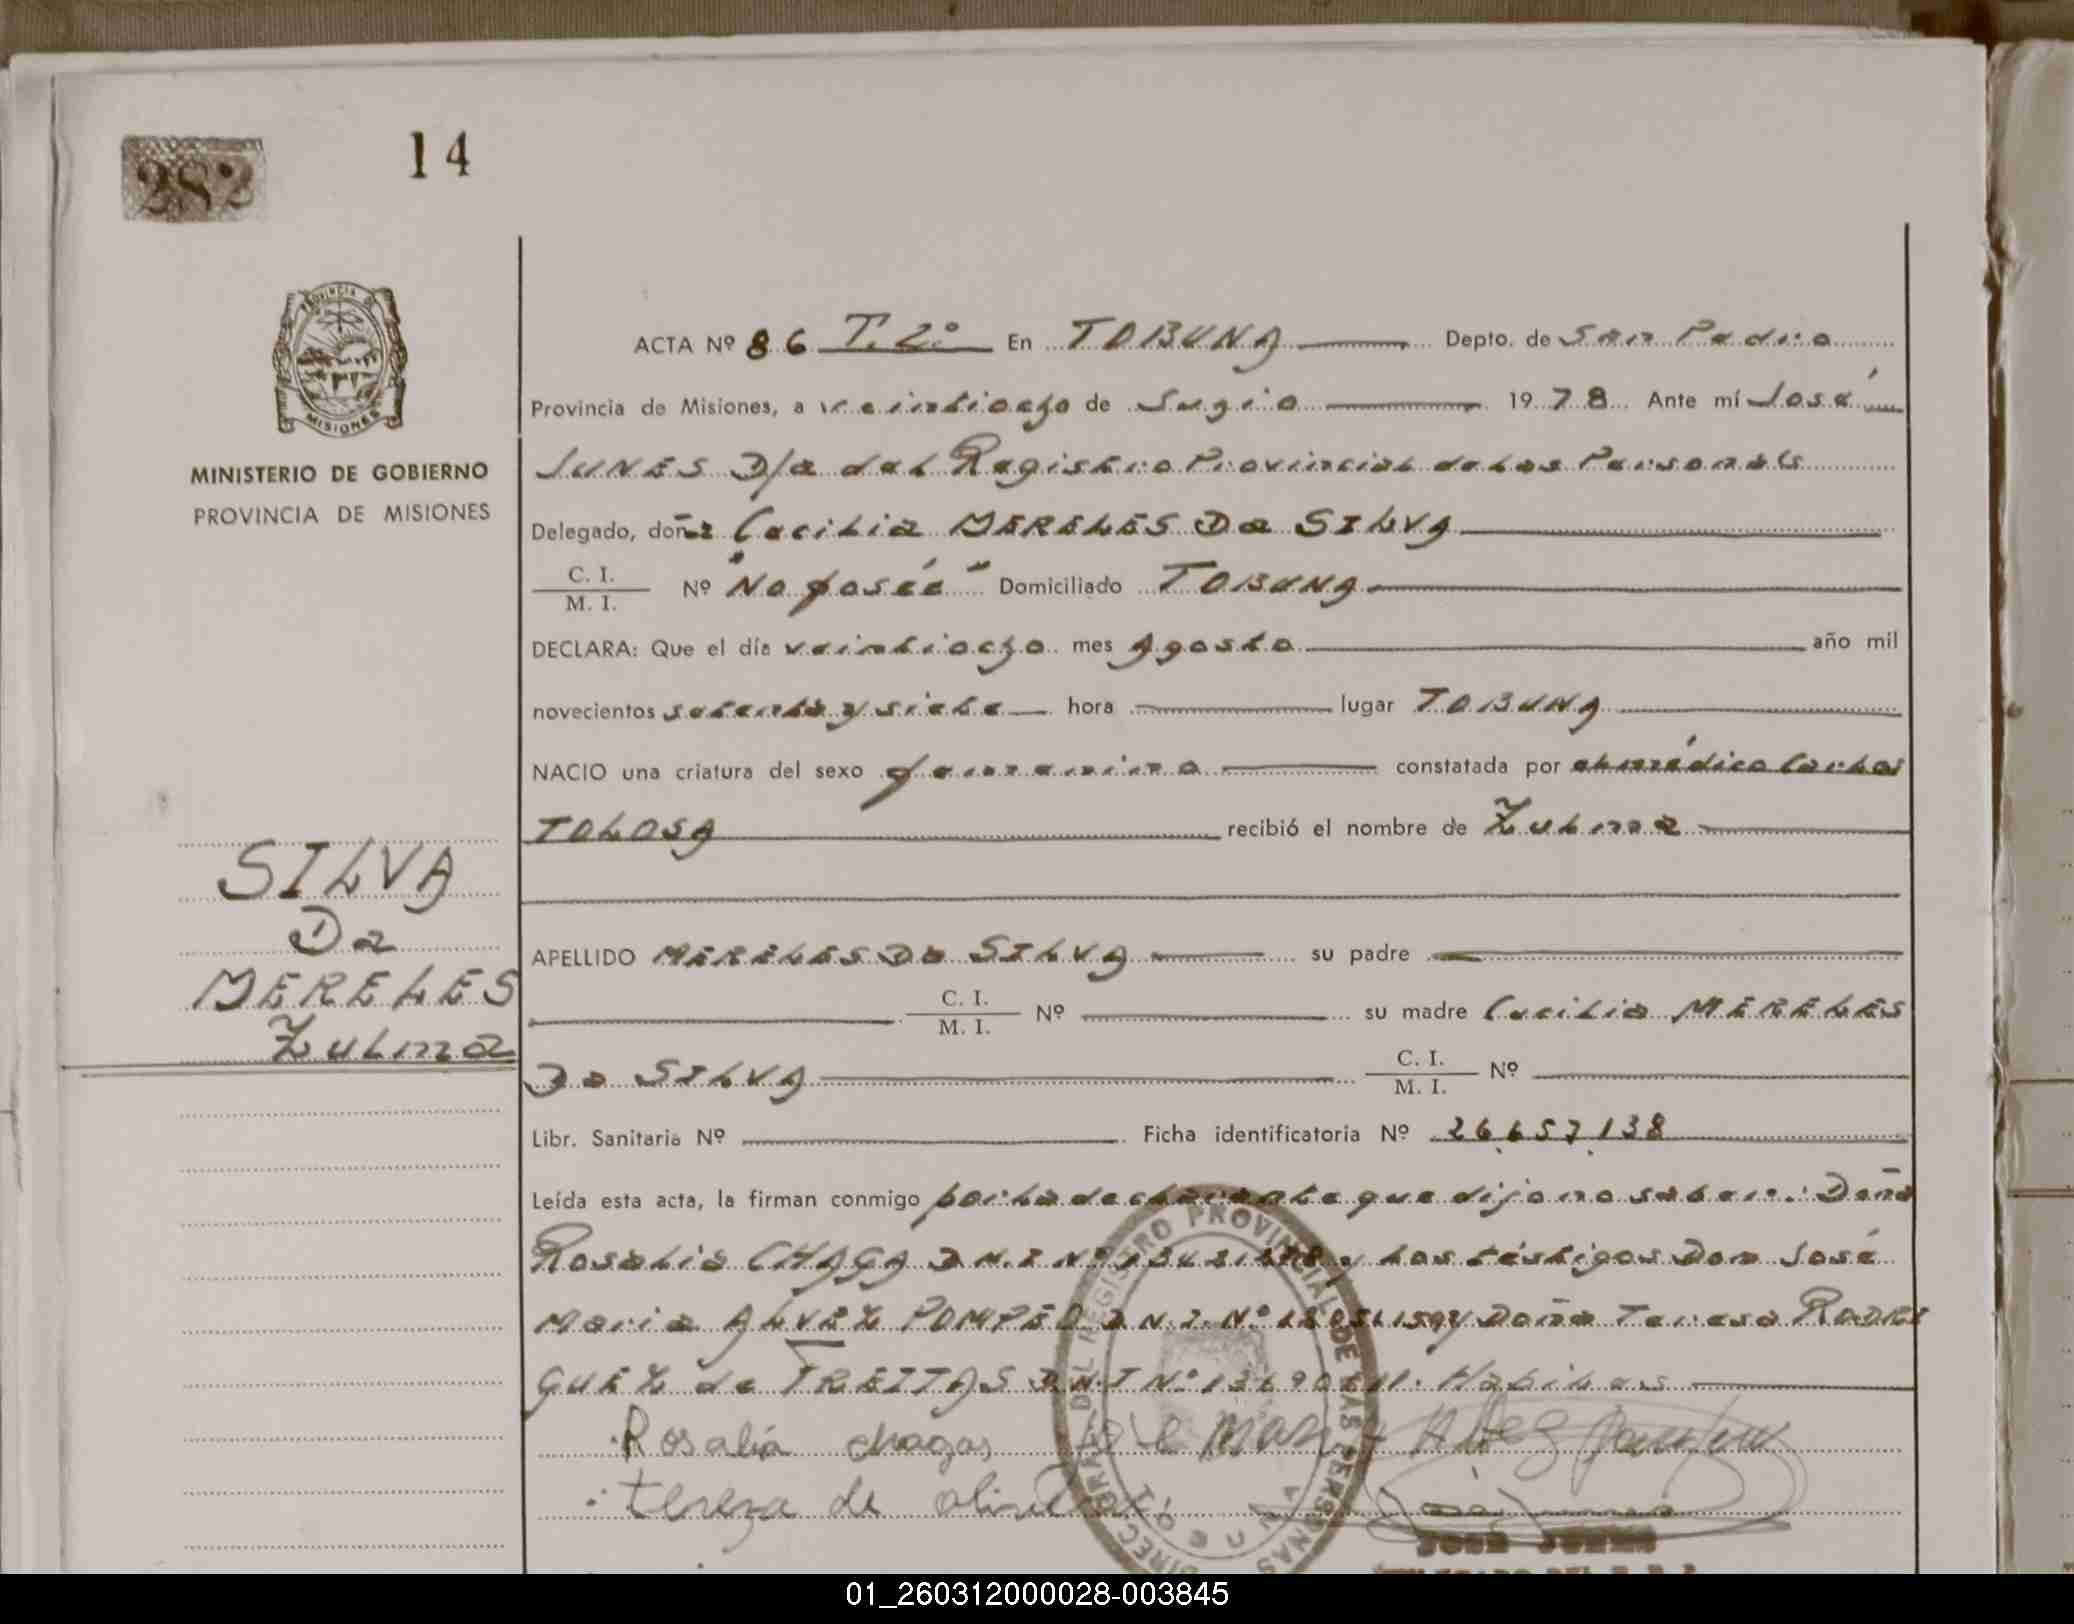 282
14
PROVINCIA DE
MISIONES
MINISTERIO DE GOBIERNO
PROVINCIA DE MISIONES
ACTA Nº 86 T. 2º En TOBUNA Depto. de San Pedro
Provincia de Misiones, a veintiocho de Junio 1978 Ante mí José
JUNES D/a del Registro Provincial de las Personas
Delegado, doña Cecilia MERELES Da SILVA
C. I.
M. I. Nº "No poseé" Domiciliado TOBUNA
DECLARA: Que el día veintiocho mes Agosto año mil
novecientos setenta y siete hora lugar TOBUNA
NACIO una criatura del sexo femenino constatada por el médico Carlos
TOLOSA recibió el nombre de Zulma
SILVA
Da
MERELES
Zulma
APELLIDO MERELES Da SILVA su padre
C. I.
M. I. Nº su madre Cecilia MERELES
Da SILVA C. I.
M. I. Nº
Libr. Sanitaria Nº Ficha identificatoria Nº 26.657.138
Leída esta acta, la firman conmigo por la declarante que dijo no saber: Doña
Rosalia CHAGA D.N.I Nº y los testigos Don José
Maria ALVEZ POMPEO D.N.I. Nº y Doña Teresa RODRI
GUEZ de FREITAS D.N.I Nº Habiles
Rosalia chagas
tereza de
DEL REGISTRO PROVINCIAL DE LAS PERSONAS
TOBUNA
JOSE JUNES
01_260312000028-003845